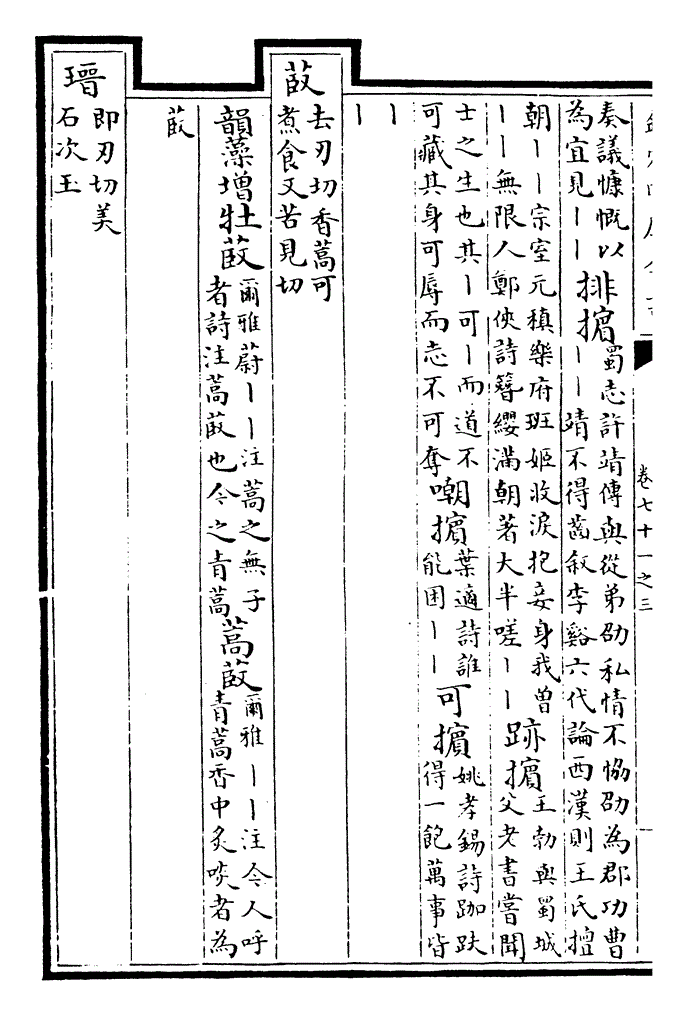 卷七十一之三
奏議慷慨以
為宜見丨丨
排擯
蜀志許靖傳與從弟劭私情不協劭為郡功曹
丨丨靖不得齒叙李谿六代論西漢則王氏擅
朝丨丨宗室元稹樂府班姬收淚抱妾身我曾
丨丨無限人鄭俠詩簪纓滿朝著大半嗟丨丨
跡擯
王勃與蜀城
父老書嘗聞
士之生也其丨可丨而道不
可藏其身可辱而志不可奪
嘲擯
葉適詩誰
能困丨丨
可擯
姚孝錫詩跏趺
得一飽萬事皆
丨
丨
菣
去刃切香蒿可
煮食又苦見切
韻藻增牡菣
爾雅蔚丨丨注蒿之無子
者詩注蒿菣也今之青蒿
蒿菣
爾雅丨丨注今人呼
青蒿香中炙啖者為
菣
瑨
即刃切美
石次玉